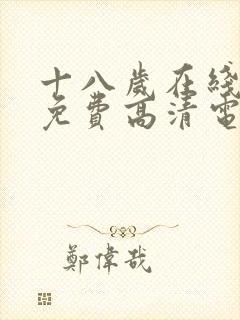 十八歲在綫
免費高清電
鄭偉哉